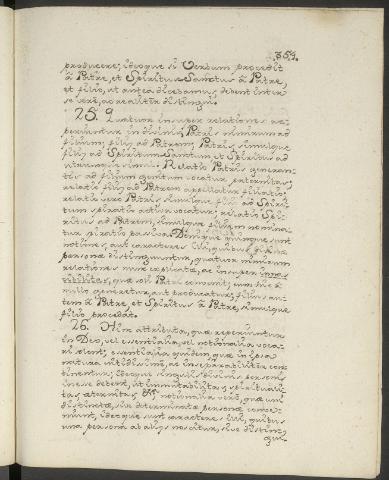 354.
producere; ideoque si Verbum procedit
à Patre, et Spiritus Sanctus à Patre,
et filio, ut antea dicebamus, debent inter
se verè, ac realiter distingui.
25. Quatuor insuper relationes re-
periuntur in divinis, Patris nimirum ad
filium; filij ad Patrem; Patris simulque
filij ad Spiritum Sanctum et Spiritus ad
utrumque simul. Relatio Patris generan-
tis ad filium genitum vocatur paternitas;
relatio filij ad Patrem appellatur filiatio;
relatio vero Patris simulque filij ad Spiri-
tum spiratio activa vocatur; relatio Spi-
ritus ad Patrem, simulque filium nomina-
tur spiratio passiva. Denique quinque sunt
notiones, aut caracteres illi, quibus divinæ
personæ distinguuntur, quatuor nimirum
relationes nunc explicatæ, ac insuper innas-
cibilitas, quæ soli Patri convenit, cum hic à
nullo generetur, aut producatur, filius au-
tem à Patre, et Spiritus à Patre, simulque
filio procedat.
26. Olim attributa, quæ reperiuntur
in Deo, vel essentialia, vel notionalia voca-
ri solent; essentialia quidem, quæ in ipsa
natura ut ac inseparabiliter con-
tinentur, ideoque singulis divinis personis
inesse debent, ut immutabilitas, spirituali-
tas, æternitas &c. notionalia verò, quæ uni
distinctæ, sive determinatæ personæ conve-
niunt, ideoque sunt caracteres illi, quibus
una persona ab alijs noscitur, sive distin-
gui-